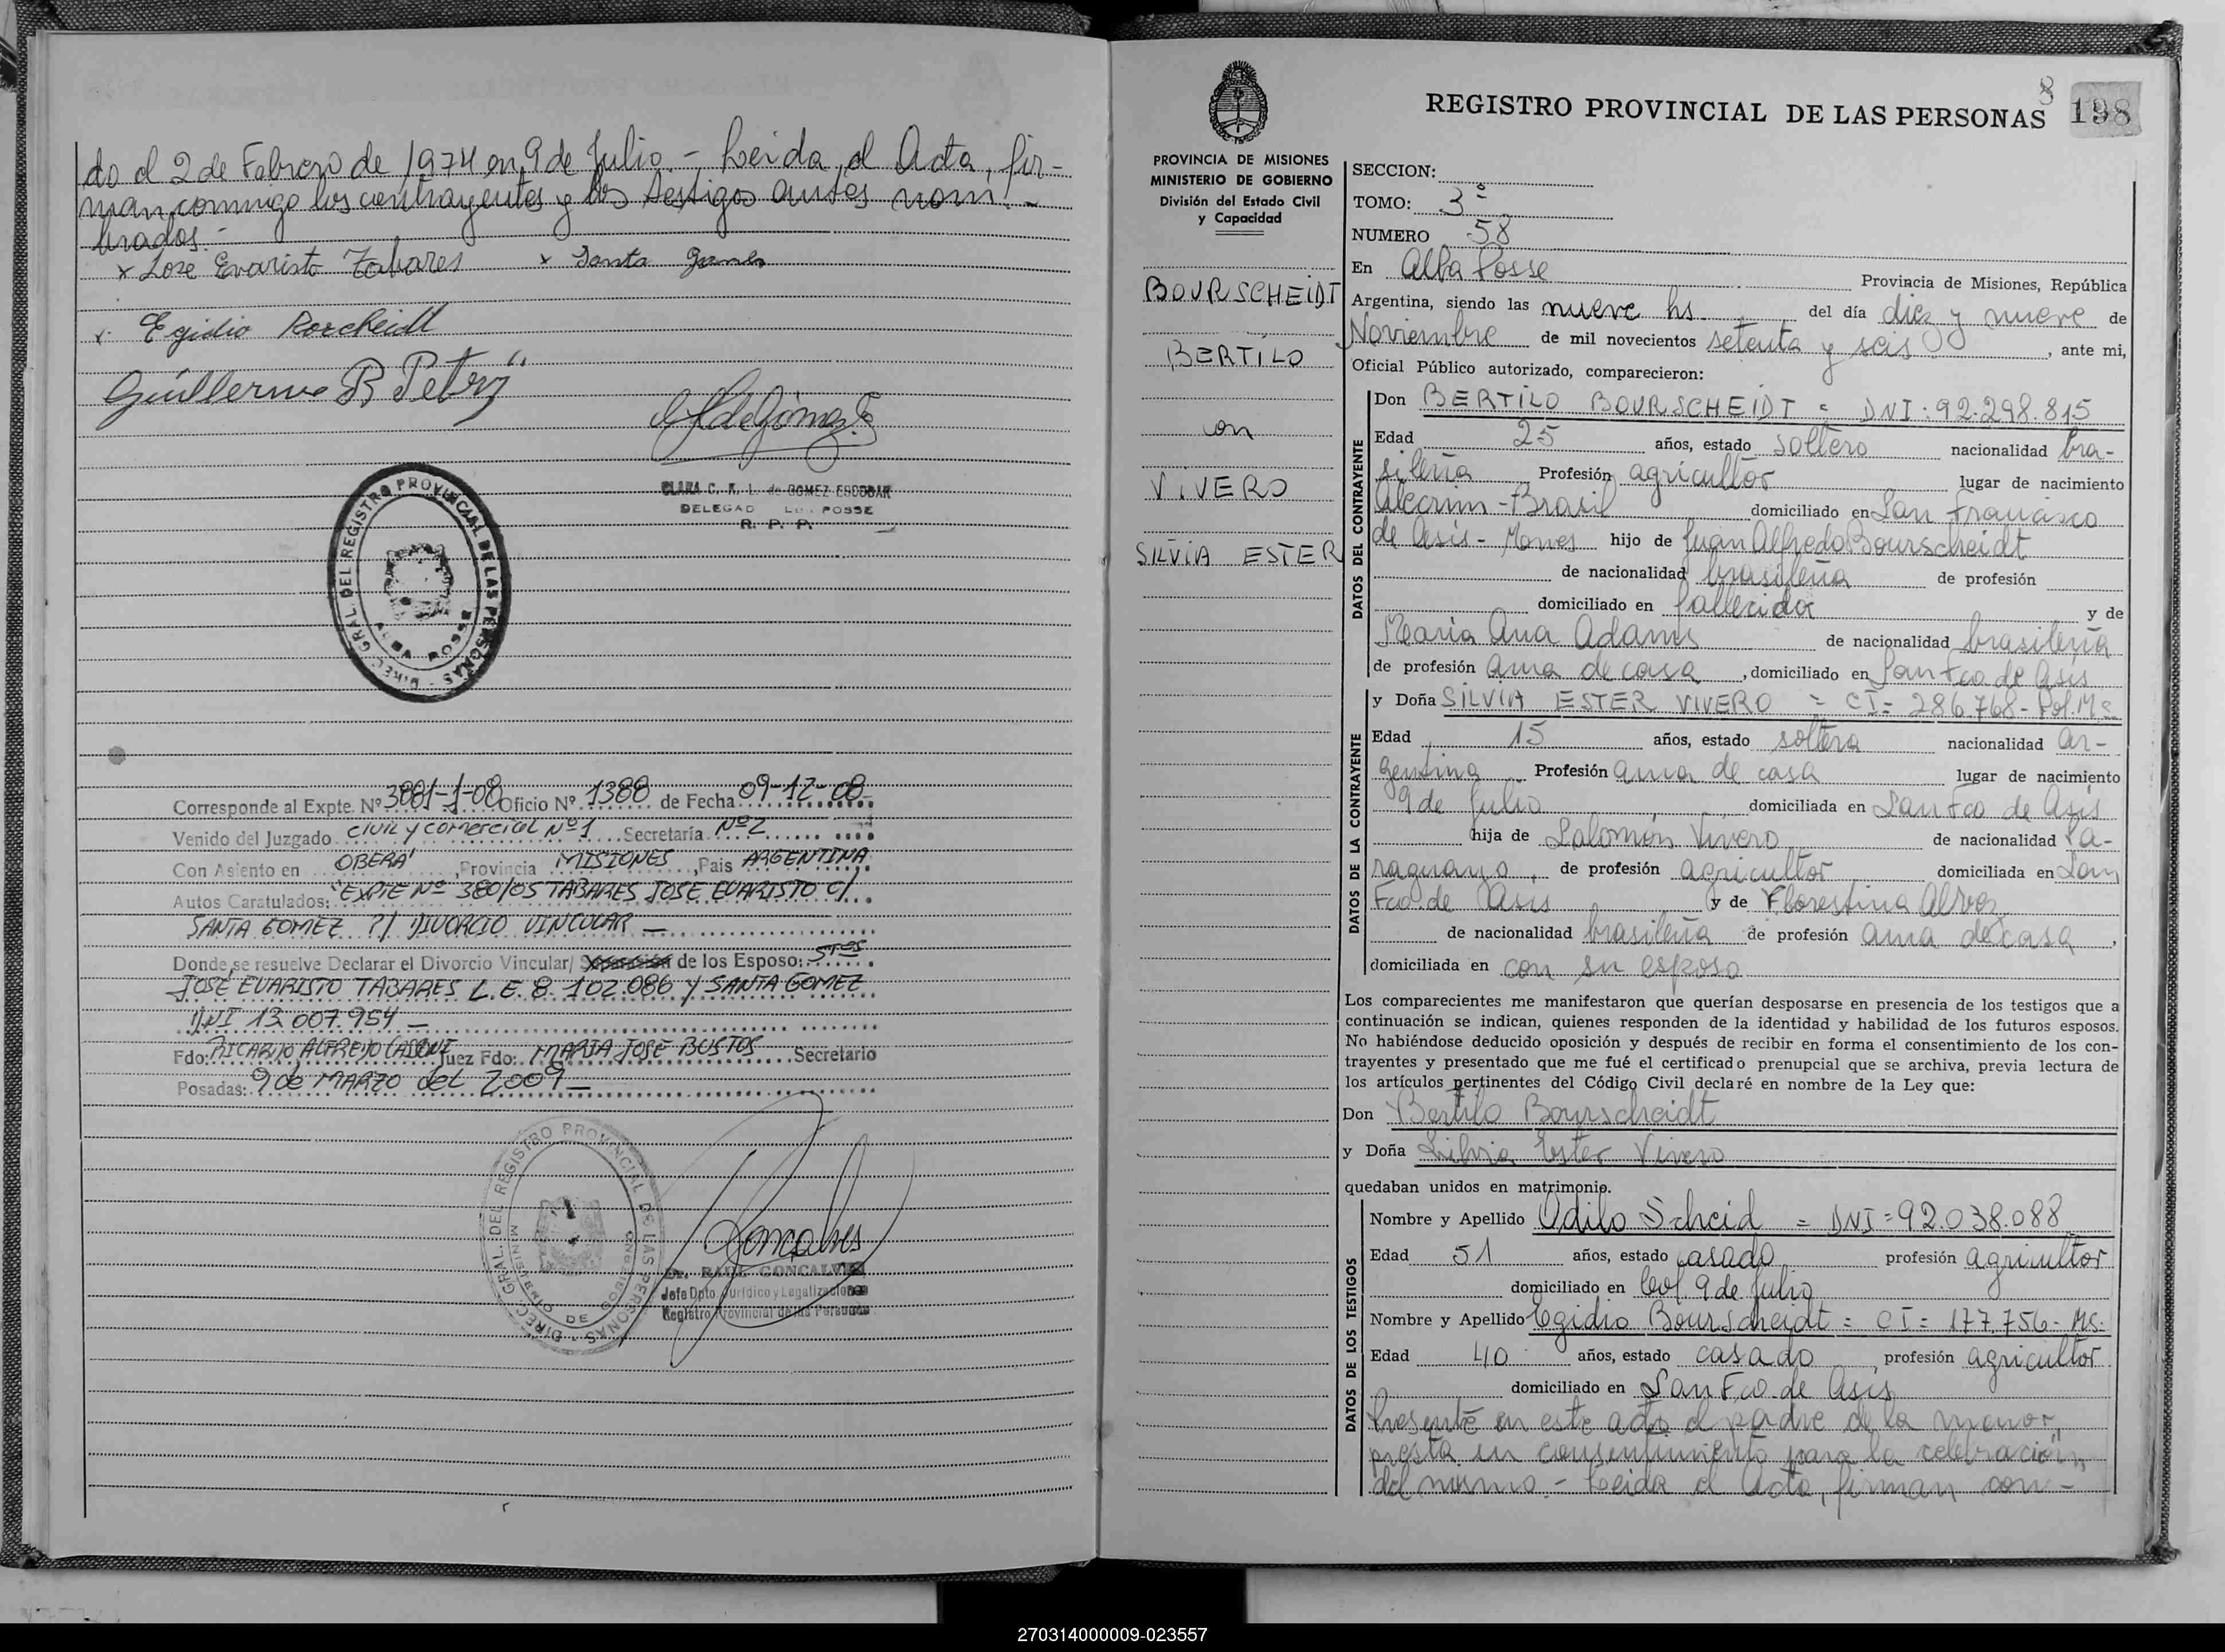 do el 2 de Febrero de 1974 en 9 de Julio - Leida el Acta, fir-
man conmigo los contrayentes y los testigos antes nom-
brados.-
x Jose Evaristo Tabares x Santa
x Egidio
Guillermo B Petry
CLARA C. K. L. de GOMEZ ESCOBAR
DELEGAD POSSE
R. P. P.
DIREC. GRAL. DEL REGISTRO PROVINCIAL DE LAS PERSONAS
ALBA POSSE
Corresponde al Expte. Nº 3881-1-08 Oficio Nº 1388 de Fecha 09-12-08
Venido del Juzgado civil y comercial Nº 1 Secretaría Nº 2
Con Asiento en OBERA' , Provincia MISIONES , Pais ARGENTINA
Autos Caratulados: "EXPTE Nº 380/05 TABARES JOSE EVARISTO C/
SANTA GOMEZ P/ DIVORCIO VINCULAR —
Donde se resuelve Declarar el Divorcio Vincular/ Separación de los Esposo: Stes
JOSÉ EVARISTO TABARES L.E. 8.102.086 y SANTA GOMEZ
DNI 13.007.954 —
Fdo: RICARDO ALFREDO Juez Fdo: MARIA JOSE BUSTOS Secretario
Posadas: 9 de MARZO del 2009 —
DIREC. GRAL. DEL REGISTRO PROVINCIAL DE LAS PERSONAS
Goncalves
Dr. RAUL GONCALVES
Jefe Dpto. Jurídico y Legalizaciones
Registro Provincial de las Personas
PROVINCIA DE MISIONES
MINISTERIO DE GOBIERNO
División del Estado Civil
y Capacidad
BOURSCHEIDT
BERTILO
con
VIVERO
SILVIA ESTER
8
REGISTRO PROVINCIAL DE LAS PERSONAS 198
SECCION:
TOMO: 3º
NUMERO 58
En Alba Posse Provincia de Misiones, República
Argentina, siendo las nueve hs. del día diez y nueve de
Noviembre de mil novecientos setenta y seis , ante mi,
Oficial Público autorizado, comparecieron:
DATOS DEL CONTRAYENTE
Don BERTILO BOURSCHEIDT = DNI: 92.298.815
Edad 25 años, estado soltero nacionalidad bra-
sileña Profesión agricultor lugar de nacimiento
Alecrim - Brasil domiciliado en San Francisco
de Asis - Mnes hijo de Juan Alfredo Bourscheidt
de nacionalidad brasileña de profesión
domiciliado en fallecido y de
Maria Ana Adams de nacionalidad brasileña
de profesión ama de casa , domiciliado en San Fco de Asis
DATOS DE LA CONTRAYENTE
y Doña SILVIA ESTER VIVERO = CI= 286.768- Pol. Ms
Edad 15 años, estado soltera nacionalidad ar-
gentina Profesión ama de casa lugar de nacimiento
9 de Julio domiciliada en San Fco de Asis
hija de Salomón Vivero de nacionalidad Pa-
raguayo, de profesión agricultor domiciliada en San
Fco. de Asis y de Florestina Alves
de nacionalidad brasileña de profesión ama de casa ,
domiciliada en con su esposo
Los comparecientes me manifestaron que querían desposarse en presencia de los testigos que a
continuación se indican, quienes responden de la identidad y habilidad de los futuros esposos.
No habiéndose deducido oposición y después de recibir en forma el consentimiento de los con-
trayentes y presentado que me fué el certificado prenupcial que se archiva, previa lectura de
los artículos pertinentes del Código Civil declaré en nombre de la Ley que:
Don Bertilo Bourscheidt
y Doña Silvia Ester Vivero
quedaban unidos en matrimonio.
DATOS DE LOS TESTIGOS
Nombre y Apellido Odilo Scheid = DNI = 92.038.088
Edad 51 años, estado casado profesión agricultor
domiciliado en Col. 9 de Julio
Nombre y Apellido Egidio Bourscheidt = CI = 177.756- MS.
Edad 40 años, estado casado , profesión agricultor
domiciliado en San Fco. de Asis
Presente en este acto el padre de la menor,
presta su consentimiento para la celebración
del mismo.- Leida el Acta, firman con-
270314000009-023557